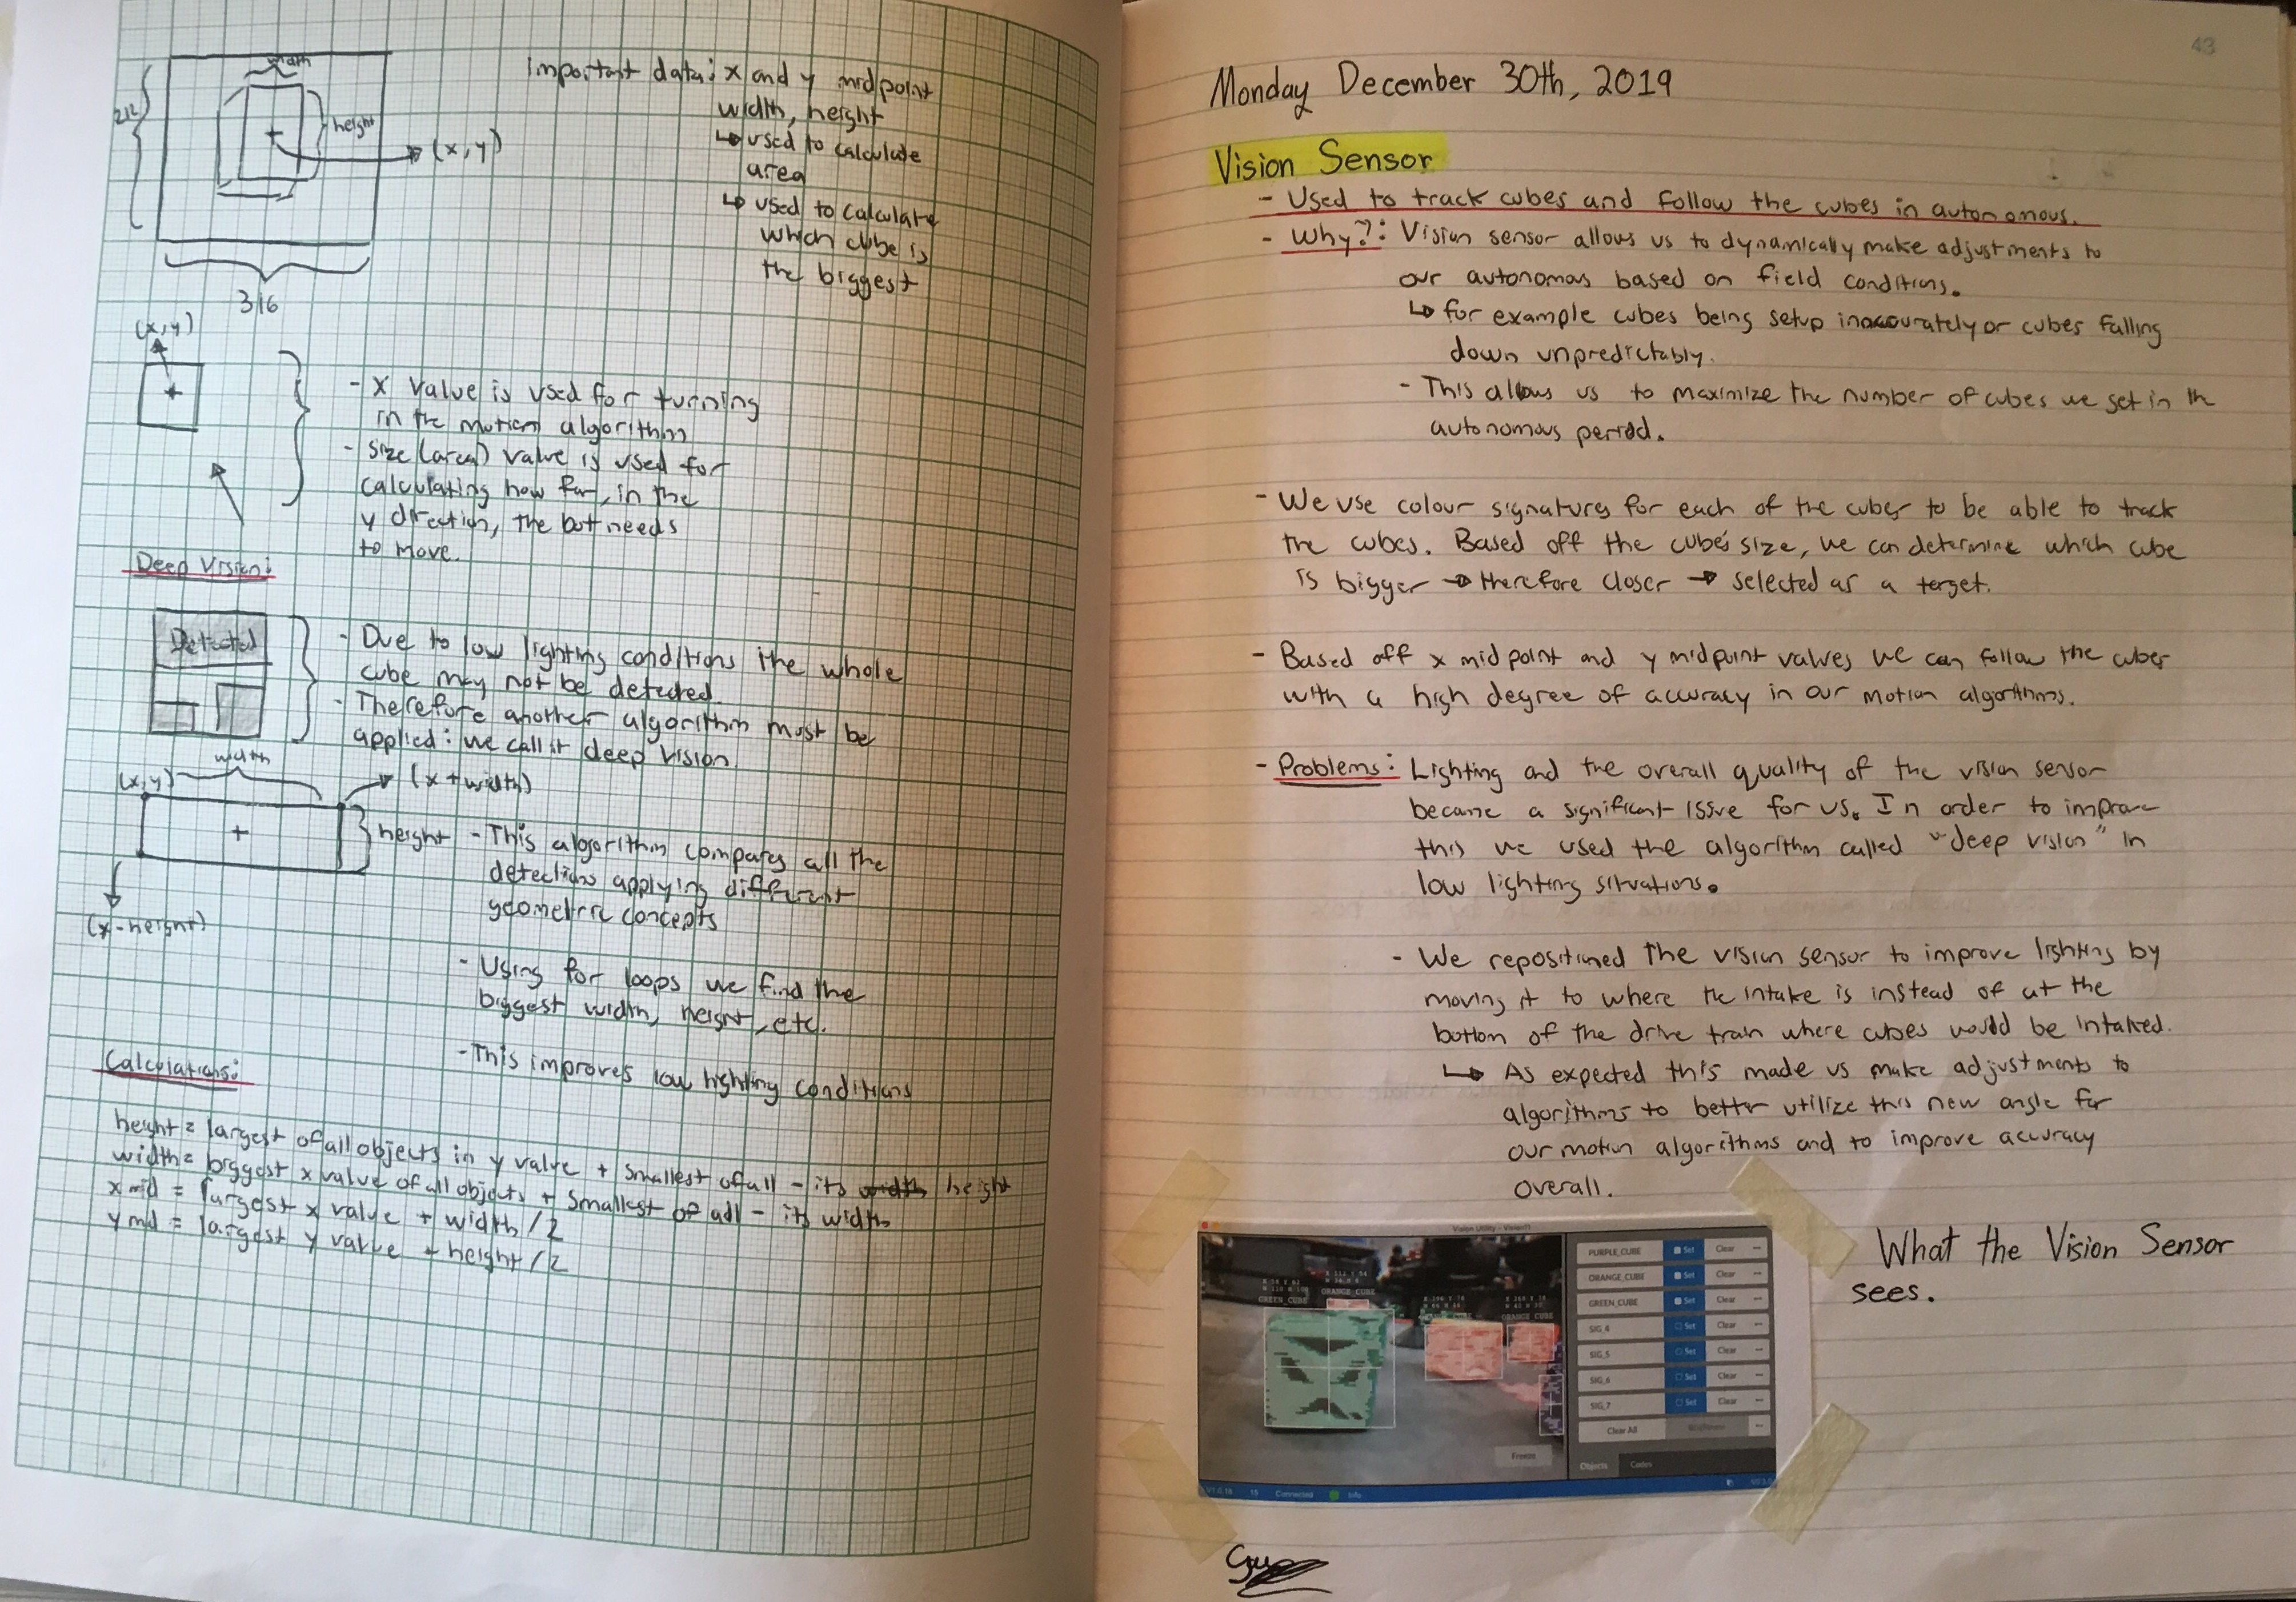 width
212
height
(x,y)
316
important data: x and y midpoint
width, height
↳ used to calculate
area
↳ used to calculate
which cube is
the biggest
(x,y)
- X value is used for turning
in the motion algorithm
- Size (area) value is used for
calculating how far, in the
y direction, the bot needs
to move.
Deep Vision:
Detected
- Due to low lighting conditions the whole
cube may not be detected.
- Therefore another algorithm must be
applied: we call it deep vision.
width
(x,y)
(x+width)
height
(x-height)
- This algorithm compares all the
detections applying different
geometric concepts
- Using for loops we find the
biggest width, height, etc.
- This improves low lighting conditions
Calculations:
height = largest of all objects in y value + smallest of all - its width height
width = biggest x value of all objects + smallest of all - its width
x mid = largest x value + width/2
y mid = largest y value + height/2
43
Monday December 30th, 2019
Vision Sensor
- Used to track cubes and follow the cubes in autonomous.
- Why?: Vision sensor allows us to dynamically make adjustments to
our autonomous based on field conditions.
↳ for example cubes being setup inaccurately or cubes falling
down unpredictably.
- This allows us to maximize the number of cubes we get in the
autonomous period.
- We use colour signatures for each of the cubes to be able to track
the cubes. Based off the cube's size, we can determine which cube
is bigger → therefore closer → selected as a target.
- Based off x midpoint and y midpoint values we can follow the cubes
with a high degree of accuracy in our motion algorithms.
- Problems: Lighting and the overall quality of the vision sensor
became a significant issue for us. In order to improve
this we used the algorithm called "deep vision" in
low lighting situations.
- We repositioned the vision sensor to improve lighting by
moving it to where the intake is instead of at the
bottom of the drive train where cubes would be intaked.
↳ As expected this made us make adjustments to
algorithms to better utilize this new angle for
our motion algorithms and to improve accuracy
overall.
Vision Utility - Vision11
GREEN_CUBE
ORANGE_CUBE
ORANGE_CUBE
PURPLE_CUBE Set Clear
ORANGE_CUBE Set Clear
GREEN_CUBE Set Clear
SIG_4 Set Clear
SIG_5 Set Clear
SIG_6 Set Clear
SIG_7 Set Clear
Clear All
Freeze
Objects Codes
V1.0.16 15 Connected Info
What the Vision Sensor
sees.